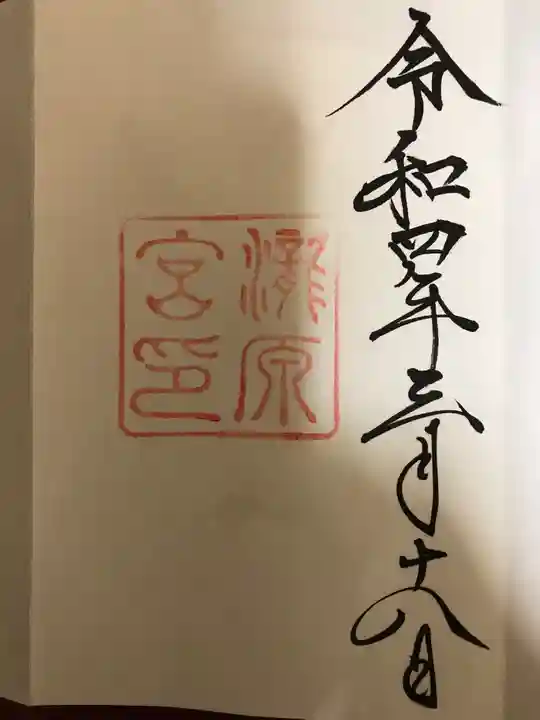 令和四年三月十八日
瀧原
宮印